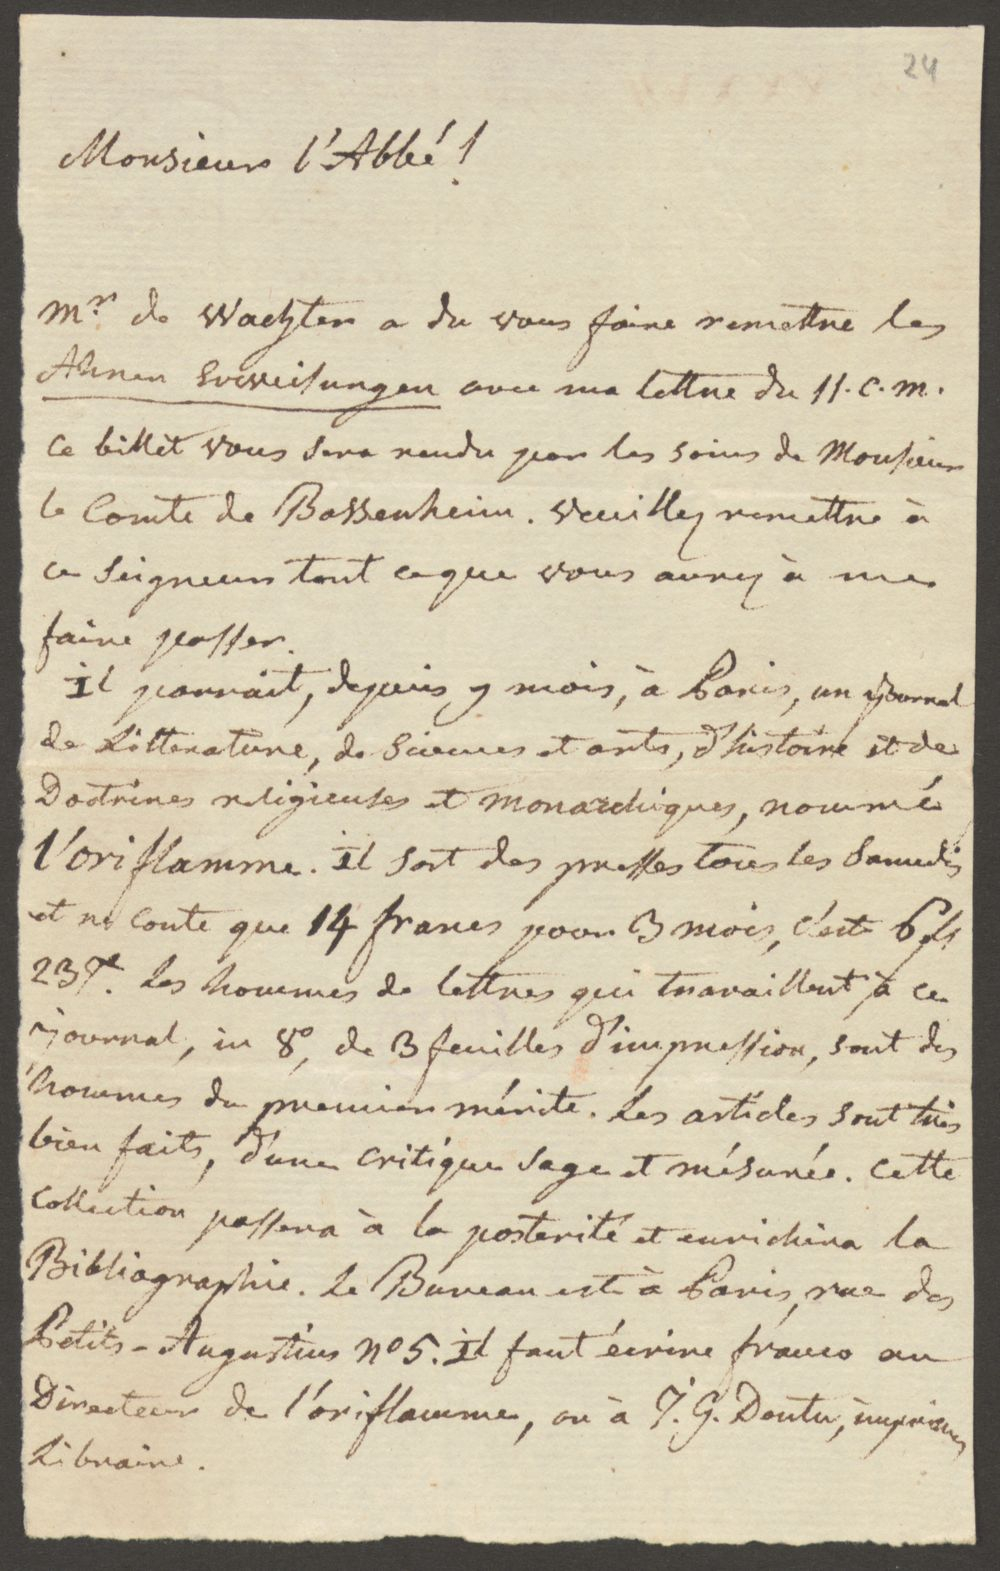 24
Monsieur l'Abbé!
Mr. de Wachter a du vous faire remettre les
Ahnen Erweisungen avec ma lettre du 11. c. m.
ce billet vous sera rendu par les soins de Monsieur
le Comte de Bassenheim. veuillez remettre à
ce Seigneur tout ce que vous aurez à me
faire passer.
il parrait, depuis 9 mois, à Paris, un journal
de Litterature, de Sciences et arts, d'histoire et de
Doctrines religieuses et monarchiques, nommé
l'oriflamme. il sort des presses tous les Samedis
et ne coute que 14 francs pour 3 mois, c'est 6 fl
23 . Les hommes de lettres qui travaillent à ce
journal, in 8º, de 3 feuilles d'impression, sont des
hommes du premier mérite. Les articles sont très
bien faits, d'une critique sage et mésurée. cette
collection passera à la posterité et enrichira la
Bibliographie. Le Bureau est à Paris, rue des
Petits-Augustins nº 5. il faut écrire franco au
Directeur de l'oriflamme, ou à J. G. Dentu, imprimeur
Libraire.